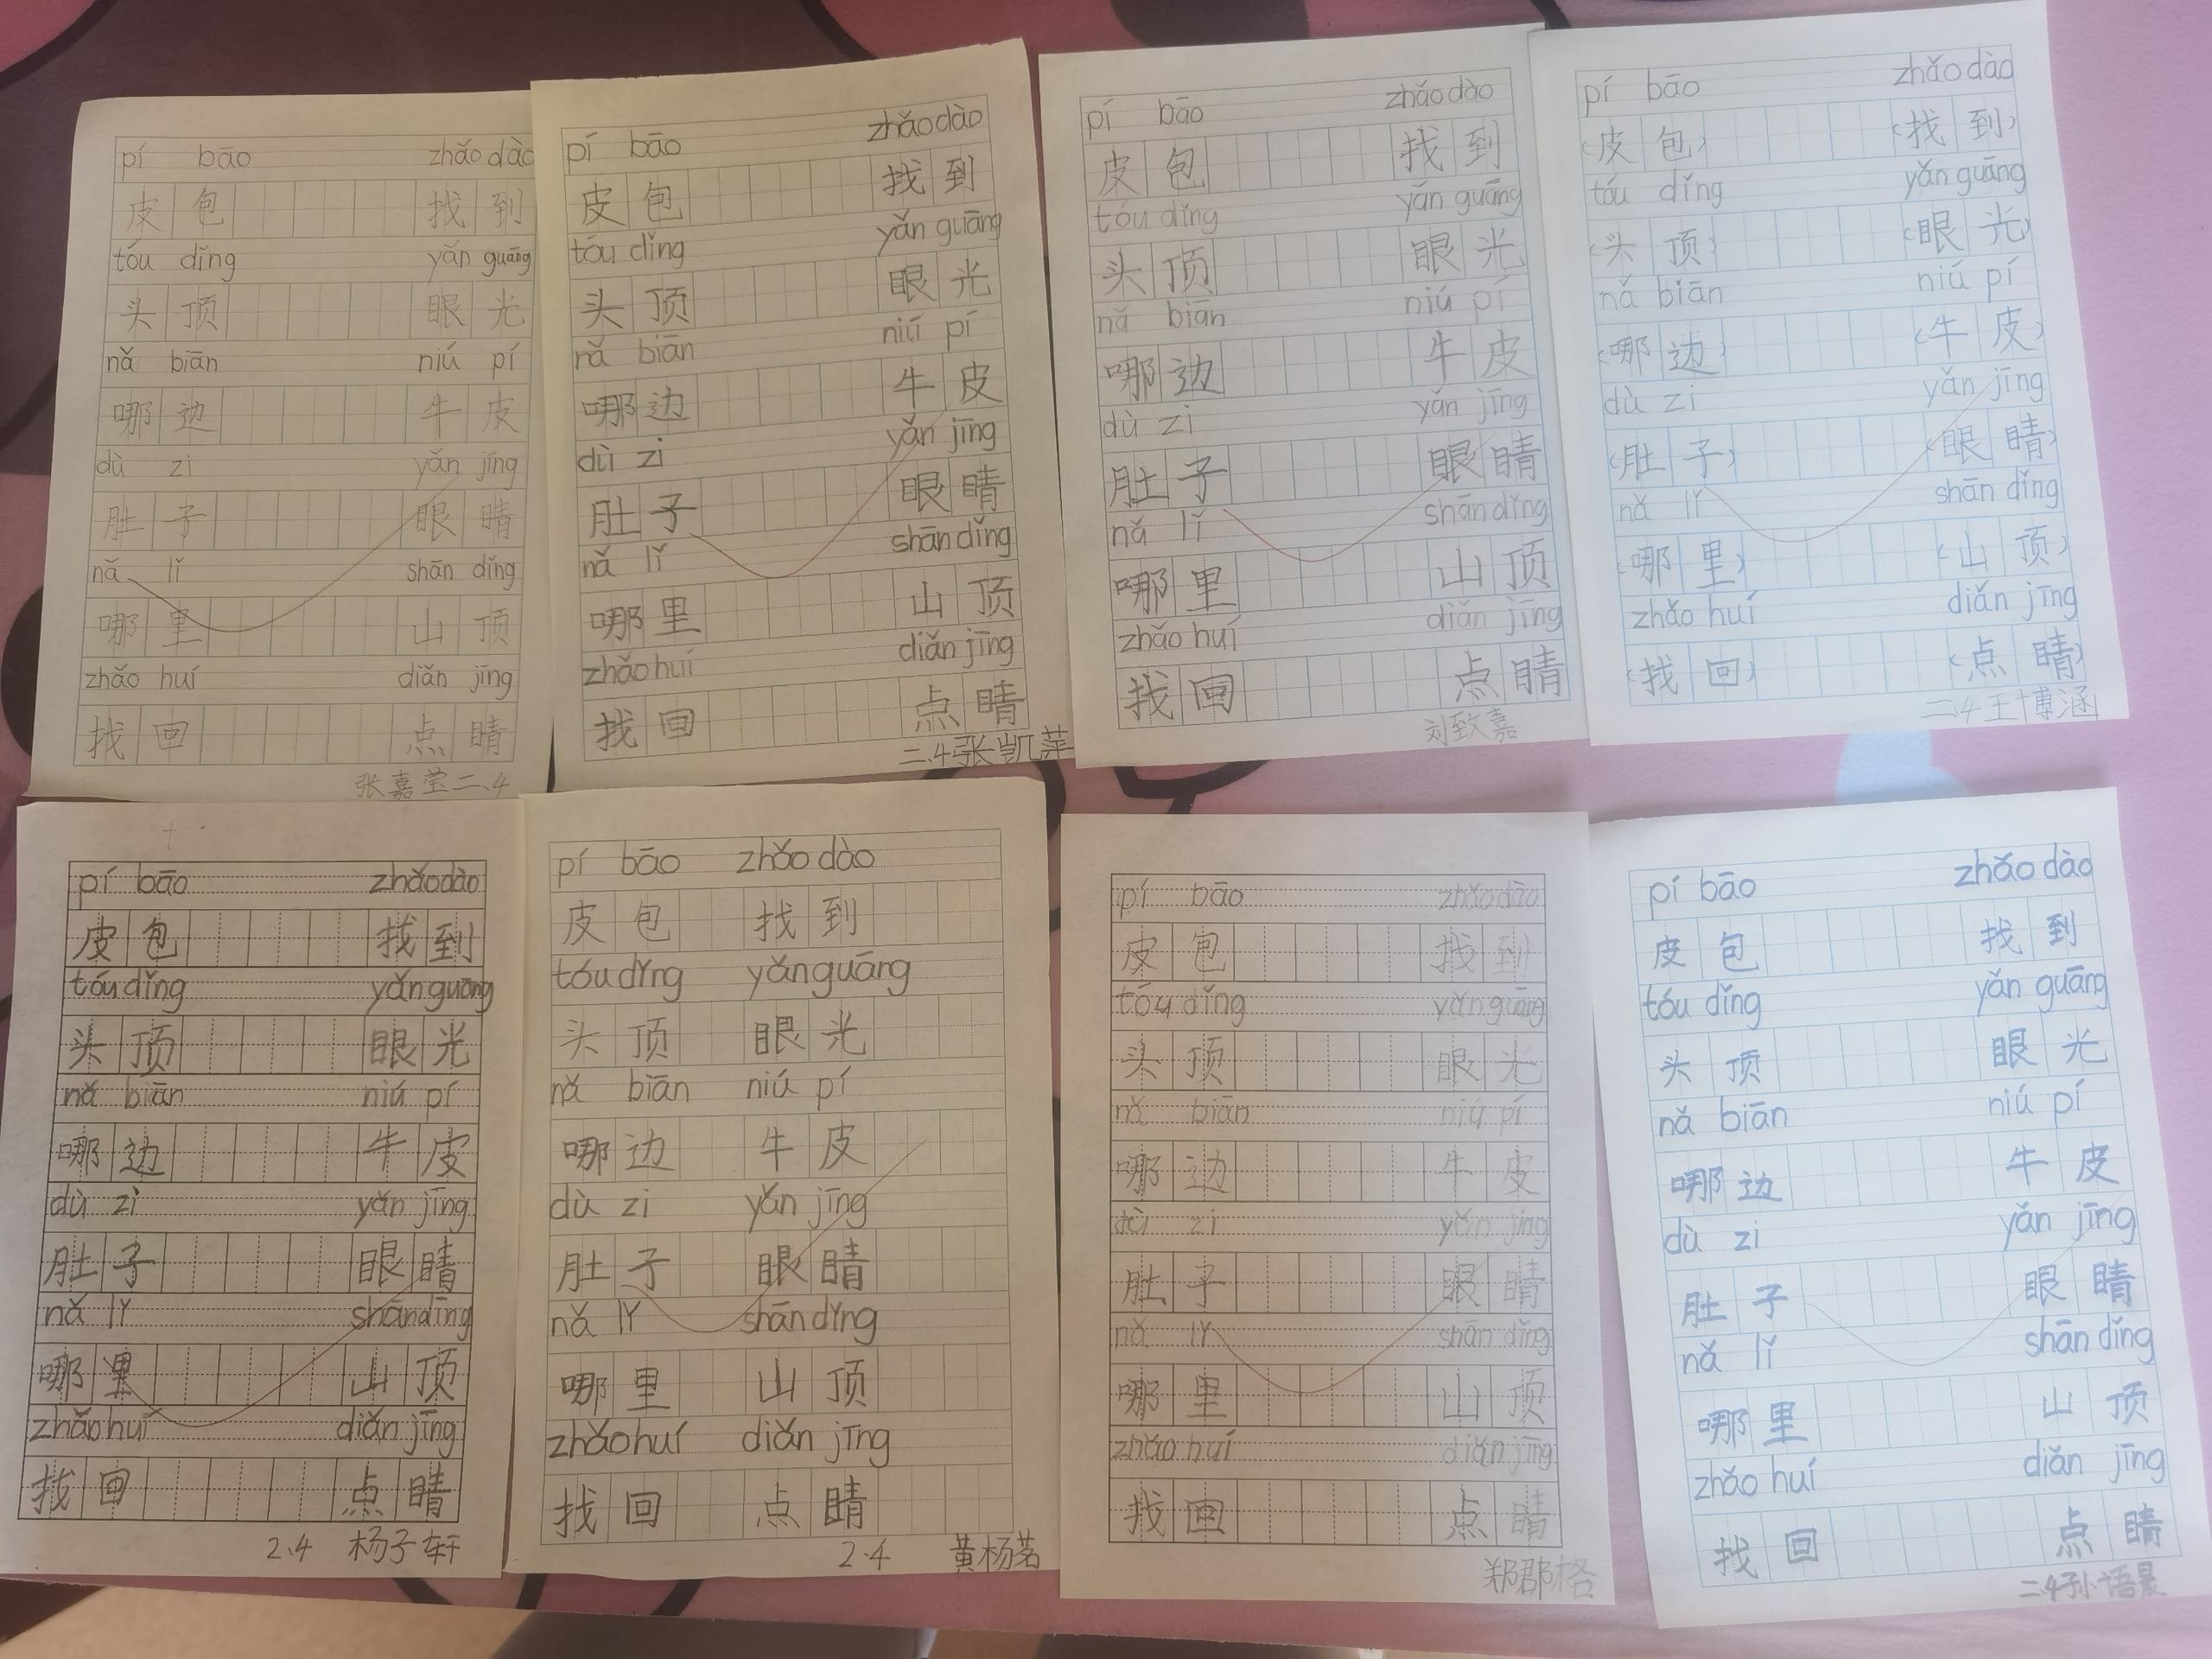 pí bāo zhǎo dào
皮包 找到
tóu dǐng yǎn guāng
头顶 眼光
nǎ biān niú pí
哪边 牛皮
dù zi yǎn jīng
肚子 眼睛
nǎ lǐ shān dǐng
哪里 山顶
zhǎo huí diǎn jīng
找回 点睛
张嘉莹二、4
pí bāo zhǎo dào
皮包 找到
tóu dǐng yǎn guāng
头顶 眼光
nǎ biān niú pí
哪边 牛皮
dù zi yǎn jīng
肚子 眼睛
nǎ lǐ shān dǐng
哪里 山顶
zhǎo huí diǎn jīng
找回 点睛
二、4张凯萍
pí bāo zhǎo dào
皮包 找到
tóu dǐng yǎn guāng
头顶 眼光
nǎ biān niú pí
哪边 牛皮
dù zi yǎn jīng
肚子 眼睛
nǎ lǐ shān dǐng
哪里 山顶
zhǎo huí diǎn jīng
找回 点睛
刘致嘉
pí bāo zhǎo dào
(皮包) (找到)
tóu dǐng yǎn guāng
(头顶) (眼光)
nǎ biān niú pí
(哪边) (牛皮)
dù zi yǎn jīng
(肚子) (眼睛)
nǎ lǐ shān dǐng
(哪里) (山顶)
zhǎo huí diǎn jīng
(找回) (点睛)
二、4王博涵
pí bāo zhǎo dào
皮包 找到
tóu dǐng yǎn guāng
头顶 眼光
nǎ biān niú pí
哪边 牛皮
dù zi yǎn jīng
肚子 眼睛
nǎ lǐ shān dǐng
哪里 山顶
zhǎo huí diǎn jīng
找回 点睛
2、4 杨子轩
pí bāo zhǎo dào
皮包 找到
tóu dǐng yǎn guāng
头顶 眼光
nǎ biān niú pí
哪边 牛皮
dù zi yǎn jīng
肚子 眼睛
nǎ lǐ shān dǐng
哪里 山顶
zhǎo huí diǎn jīng
找回 点睛
2、4 黄杨茗
pí bāo zhǎo dào
皮包 找到
tóu dǐng yǎn guāng
头顶 眼光
nǎ biān niú pí
哪边 牛皮
dù zi yǎn jīng
肚子 眼睛
nǎ lǐ shān dǐng
哪里 山顶
zhǎo huí diǎn jīng
找回 点睛
郑郡格
pí bāo zhǎo dào
皮包 找到
tóu dǐng yǎn guāng
头顶 眼光
nǎ biān niú pí
哪边 牛皮
dù zi yǎn jīng
肚子 眼睛
nǎ lǐ shān dǐng
哪里 山顶
zhǎo huí diǎn jīng
找回 点睛
二、4孙语晨